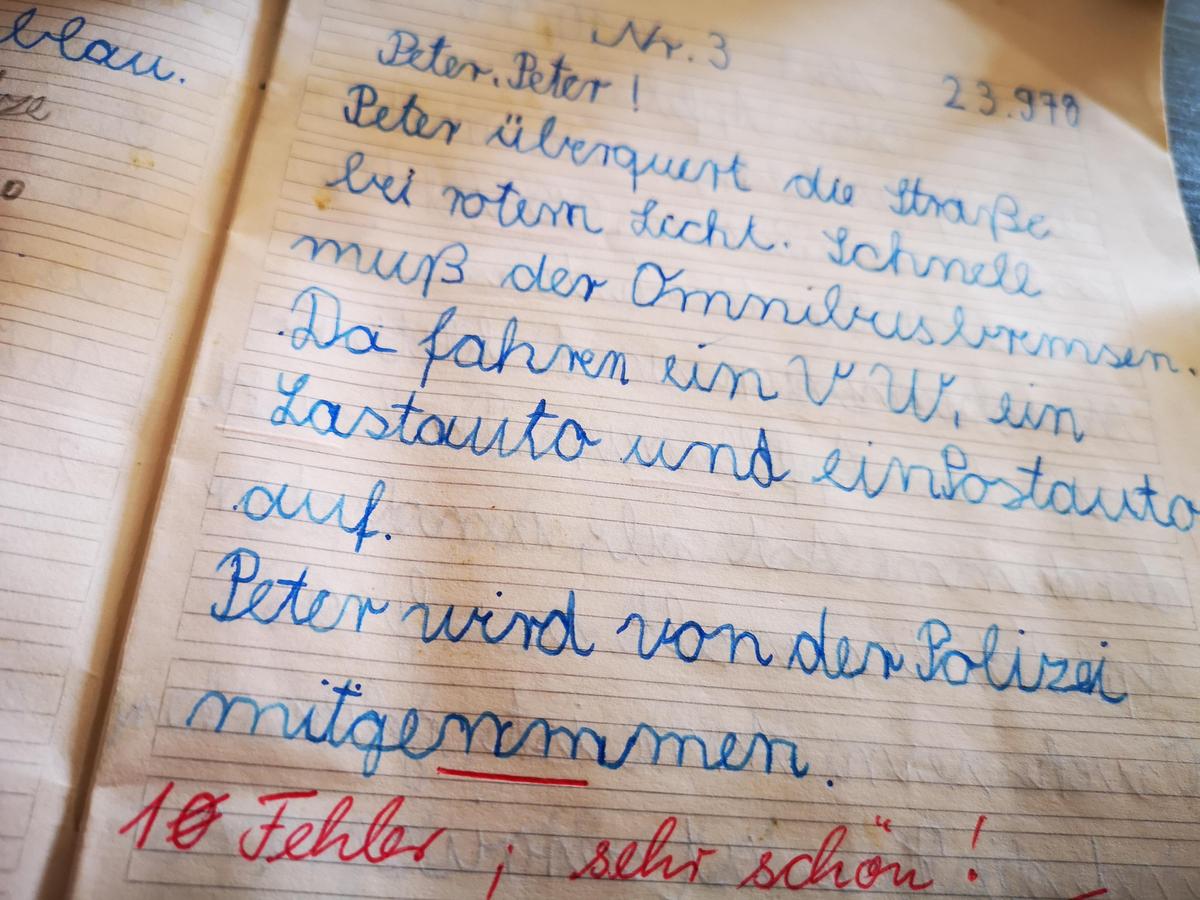 blau.
Nr. 3
Peter, Peter!
23.978
Peter überquert die Straße
bei rotem Licht. Schnell
muß der Omnibus bremsen.
Da fahren ein VW, ein
Lastauto und ein Postauto
auf.
Peter wird von der Polizei
mitgenmmmen.
1 Fehler, sehr schön!